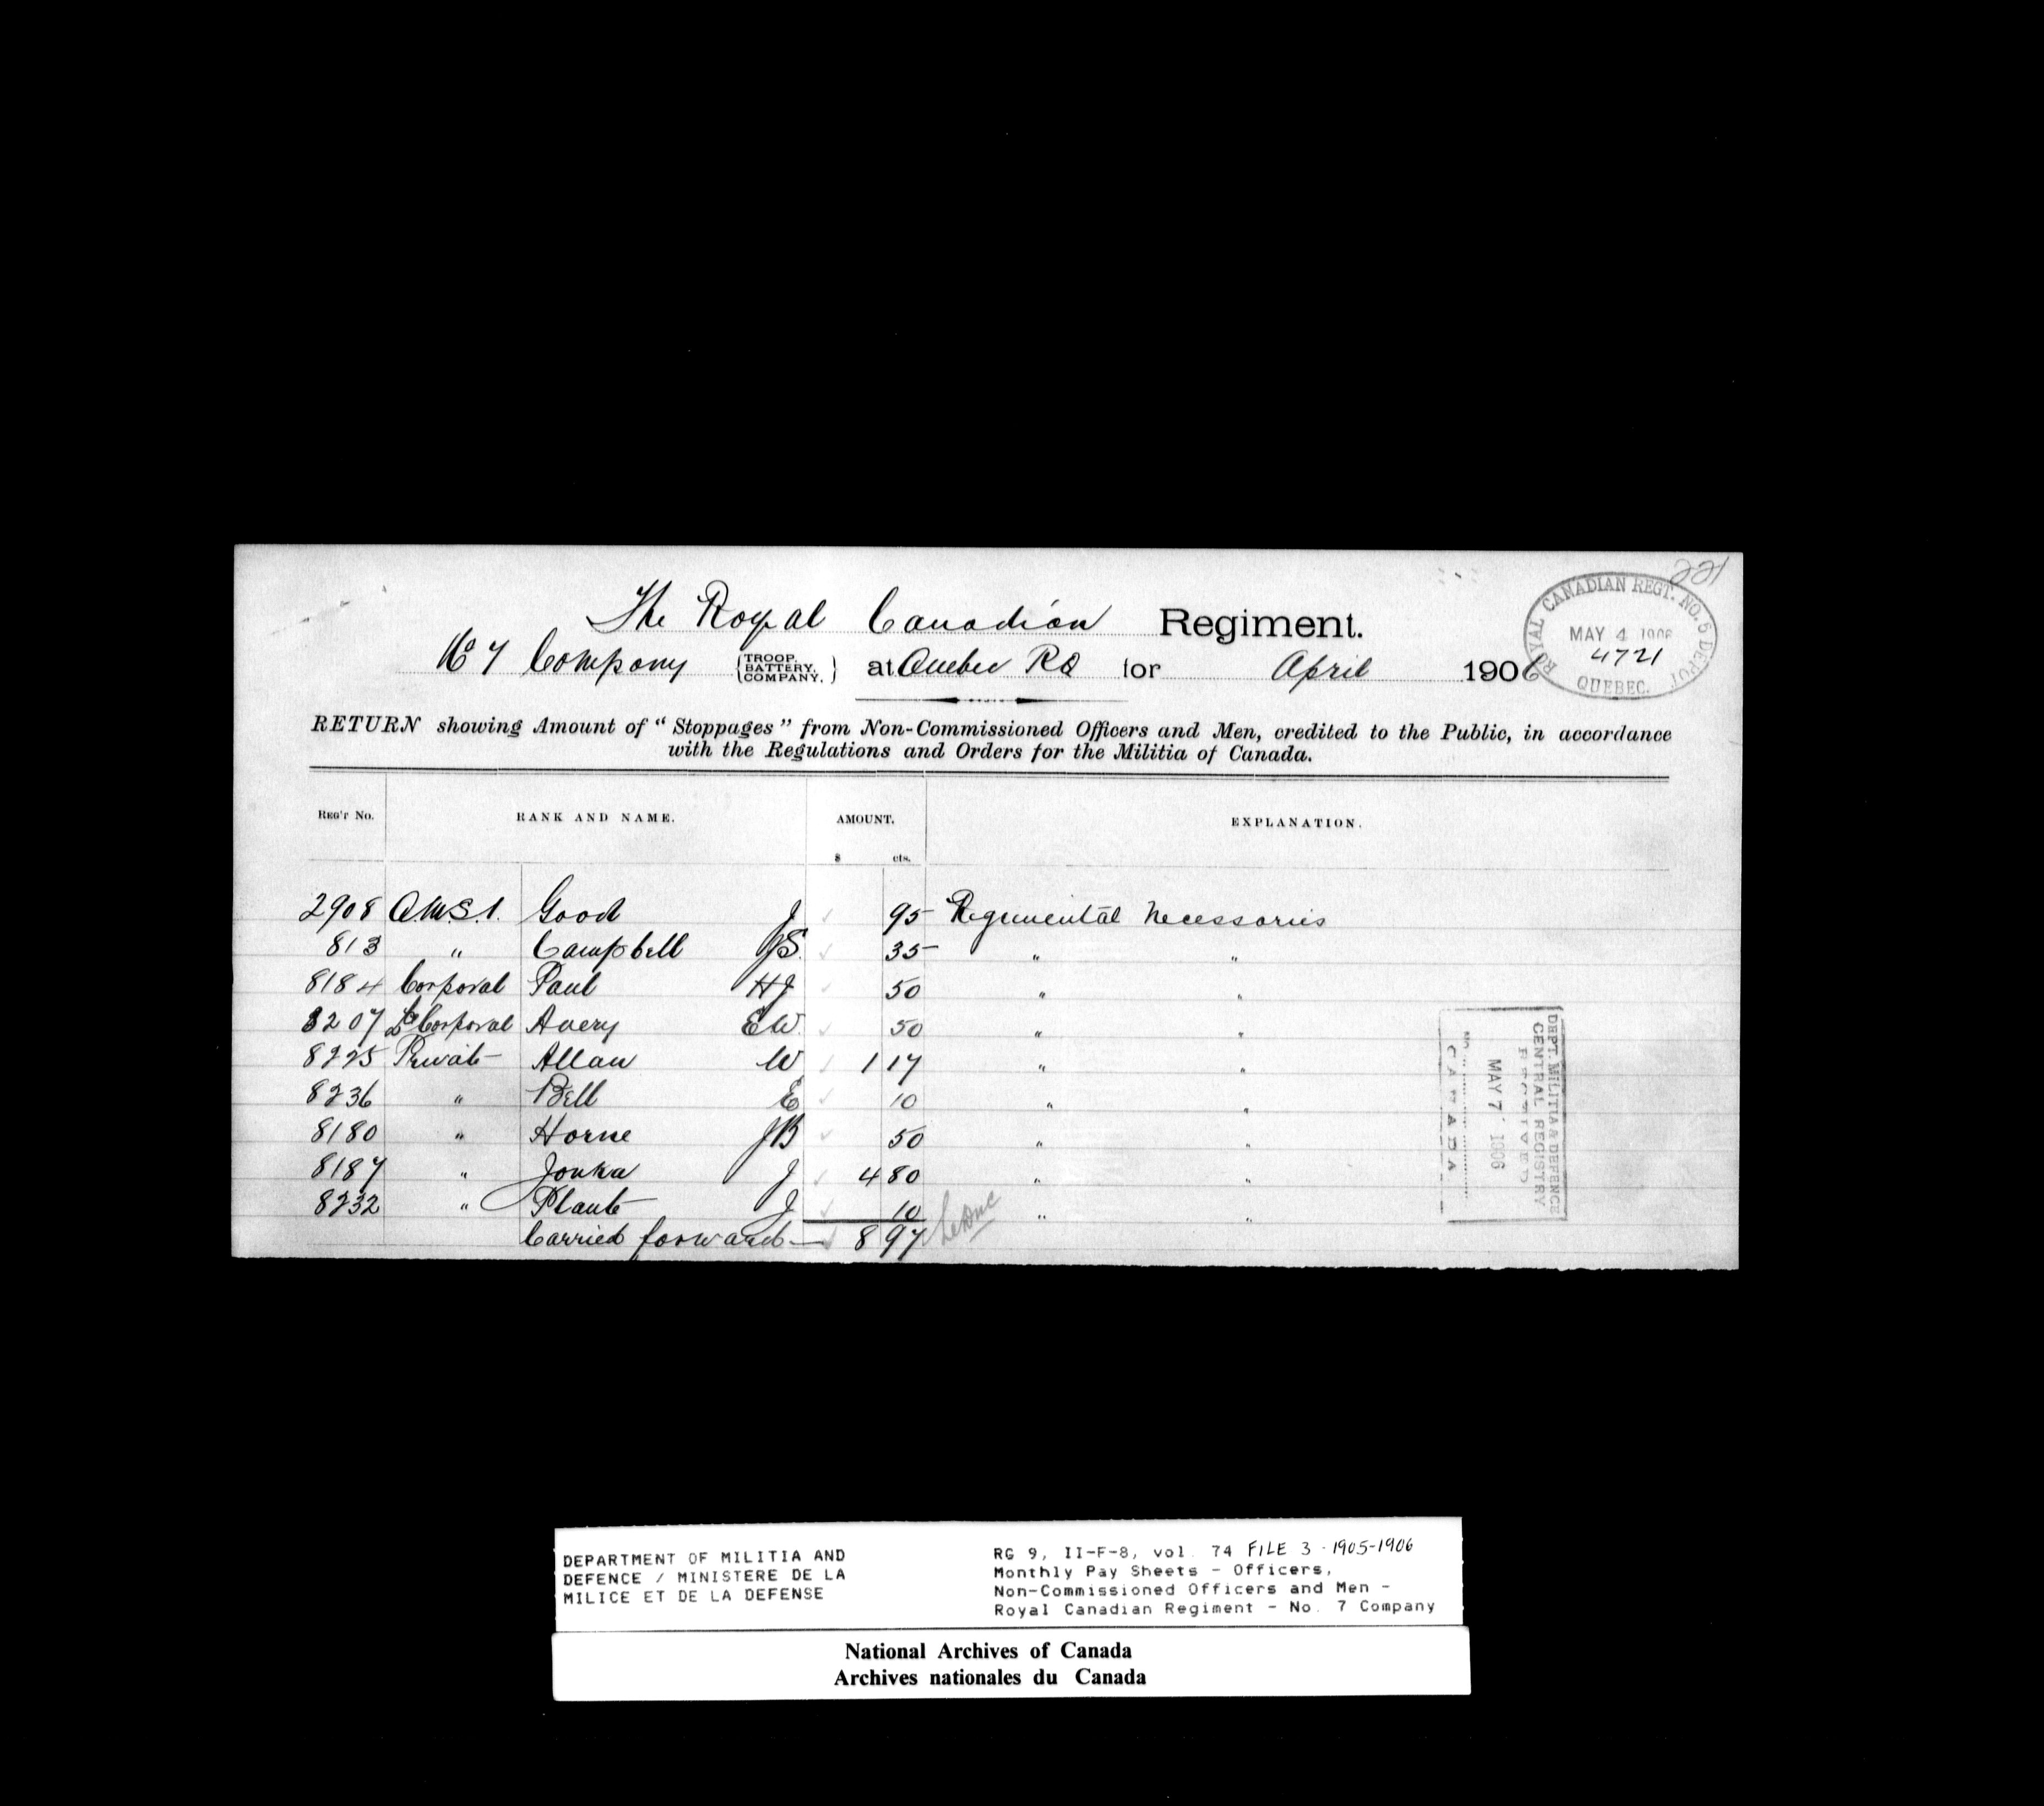 221
The Royal Canadian Regiment.
No 7 Company {TROOP, BATTERY, COMPANY,} at Quebec P.Q for April 1906
ROYAL CANADIAN REGT. NO. 5 DEPOT
MAY 4 1906
4721
QUEBEC.
RETURN showing Amount of "Stoppages" from Non-Commissioned Officers and Men, credited to the Public, in accordance
with the Regulations and Orders for the Militia of Canada.
REG'T NO. RANK AND NAME. AMOUNT. EXPLANATION.
$ cts.
2908 Q.M.S.I. Good J 95 Regimental Necessaries
813 " Campbell JS. 35 " "
8184 Corporal Paul HJ 50 " "
8207 Lce Corporal Avery EW. 50 " "
8225 Private Allan W 1 17 " "
8236 " Bell E 10 " "
8180 " Horne JB 50 " "
8187 " Jonka J 4 80 " "
8232 " Plante J 10 " "
Carried forward — 8 97 LeDuc
DEPT. MILITIA & DEFENCE
CENTRAL REGISTRY
RECEIVED
MAY 7 1906
No.
CANADA
DEPARTMENT OF MILITIA AND
DEFENCE / MINISTERE DE LA
MILICE ET DE LA DEFENSE
RG 9, II-F-8, vol. 74 FILE 3 - 1905-1906
Monthly Pay Sheets - Officers,
Non-Commissioned Officers and Men -
Royal Canadian Regiment - No. 7 Company
National Archives of Canada
Archives nationales du Canada